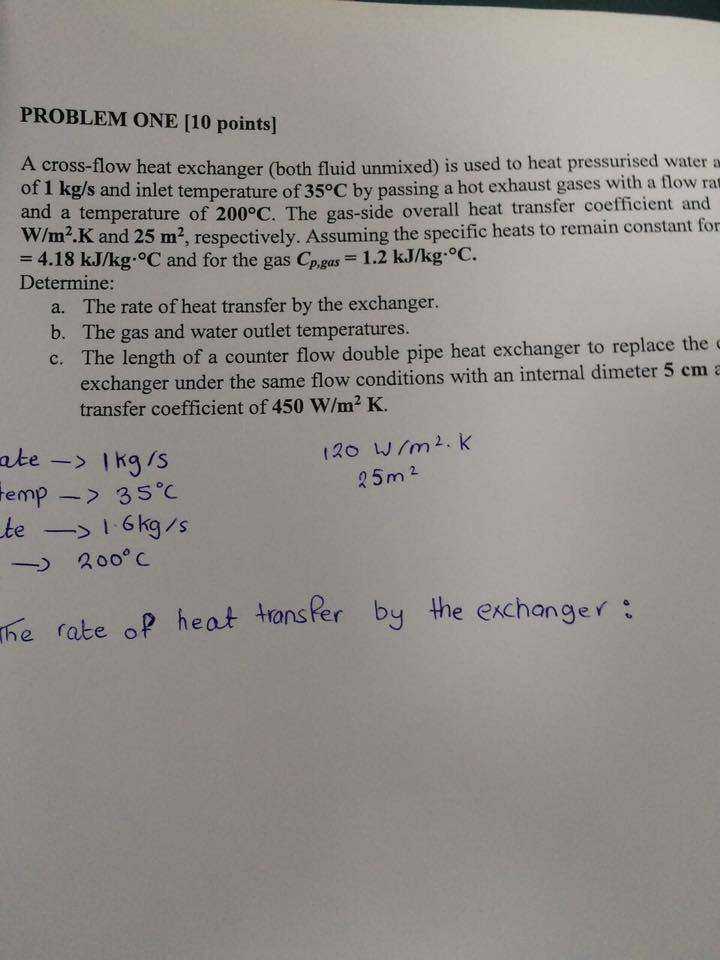 PROBLEM ONE [10 points]
A cross-flow heat exchanger (both fluid unmixed) is used to heat pressurised water
of 1 kg/s and inlet temperature of 35°C by passing a hot exhaust gases with a flow
and a temperature of 200°C. The gas-side overall heat transfer coefficient and
W/m².K and 25 m², respectively. Assuming the specific heats to remain constant for
= 4.18 kJ/kg·°C and for the gas Cp,gas = 1.2 kJ/kg·°C.
Determine:
a. The rate of heat transfer by the exchanger.
b. The gas and water outlet temperatures.
c. The length of a counter flow double pipe heat exchanger to replace the
exchanger under the same flow conditions with an internal dimeter 5 cm
transfer coefficient of 450 W/m² K.
ate -> 1kg/s 120 W/m².K
temp -> 35°C 25m²
te -> 1.6kg/s
-> 200°C
The rate of heat transfer by the exchanger :